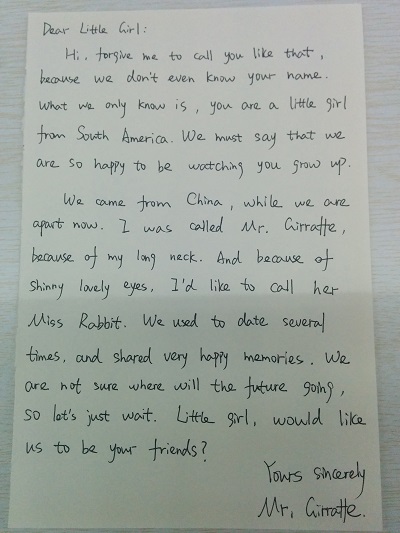 Dear Little Girl:
Hi, forgive me to call you like that,
because we don't even know your name.
What we only know is, you are a little girl
from South America. We must say that we
are so happy to be watching you grow up.
We came from China, while we are
apart now. I was called Mr. Girraffe,
because of my long neck. And because of
shinny lovely eyes, I'd like to call her
Miss Rabbit. We used to date several
times, and shared very happy memories. We
are not sure where will the future going,
so let's just wait. Little girl, would like
us to be your friends?
Yours sincerely
Mr. Girraffe.